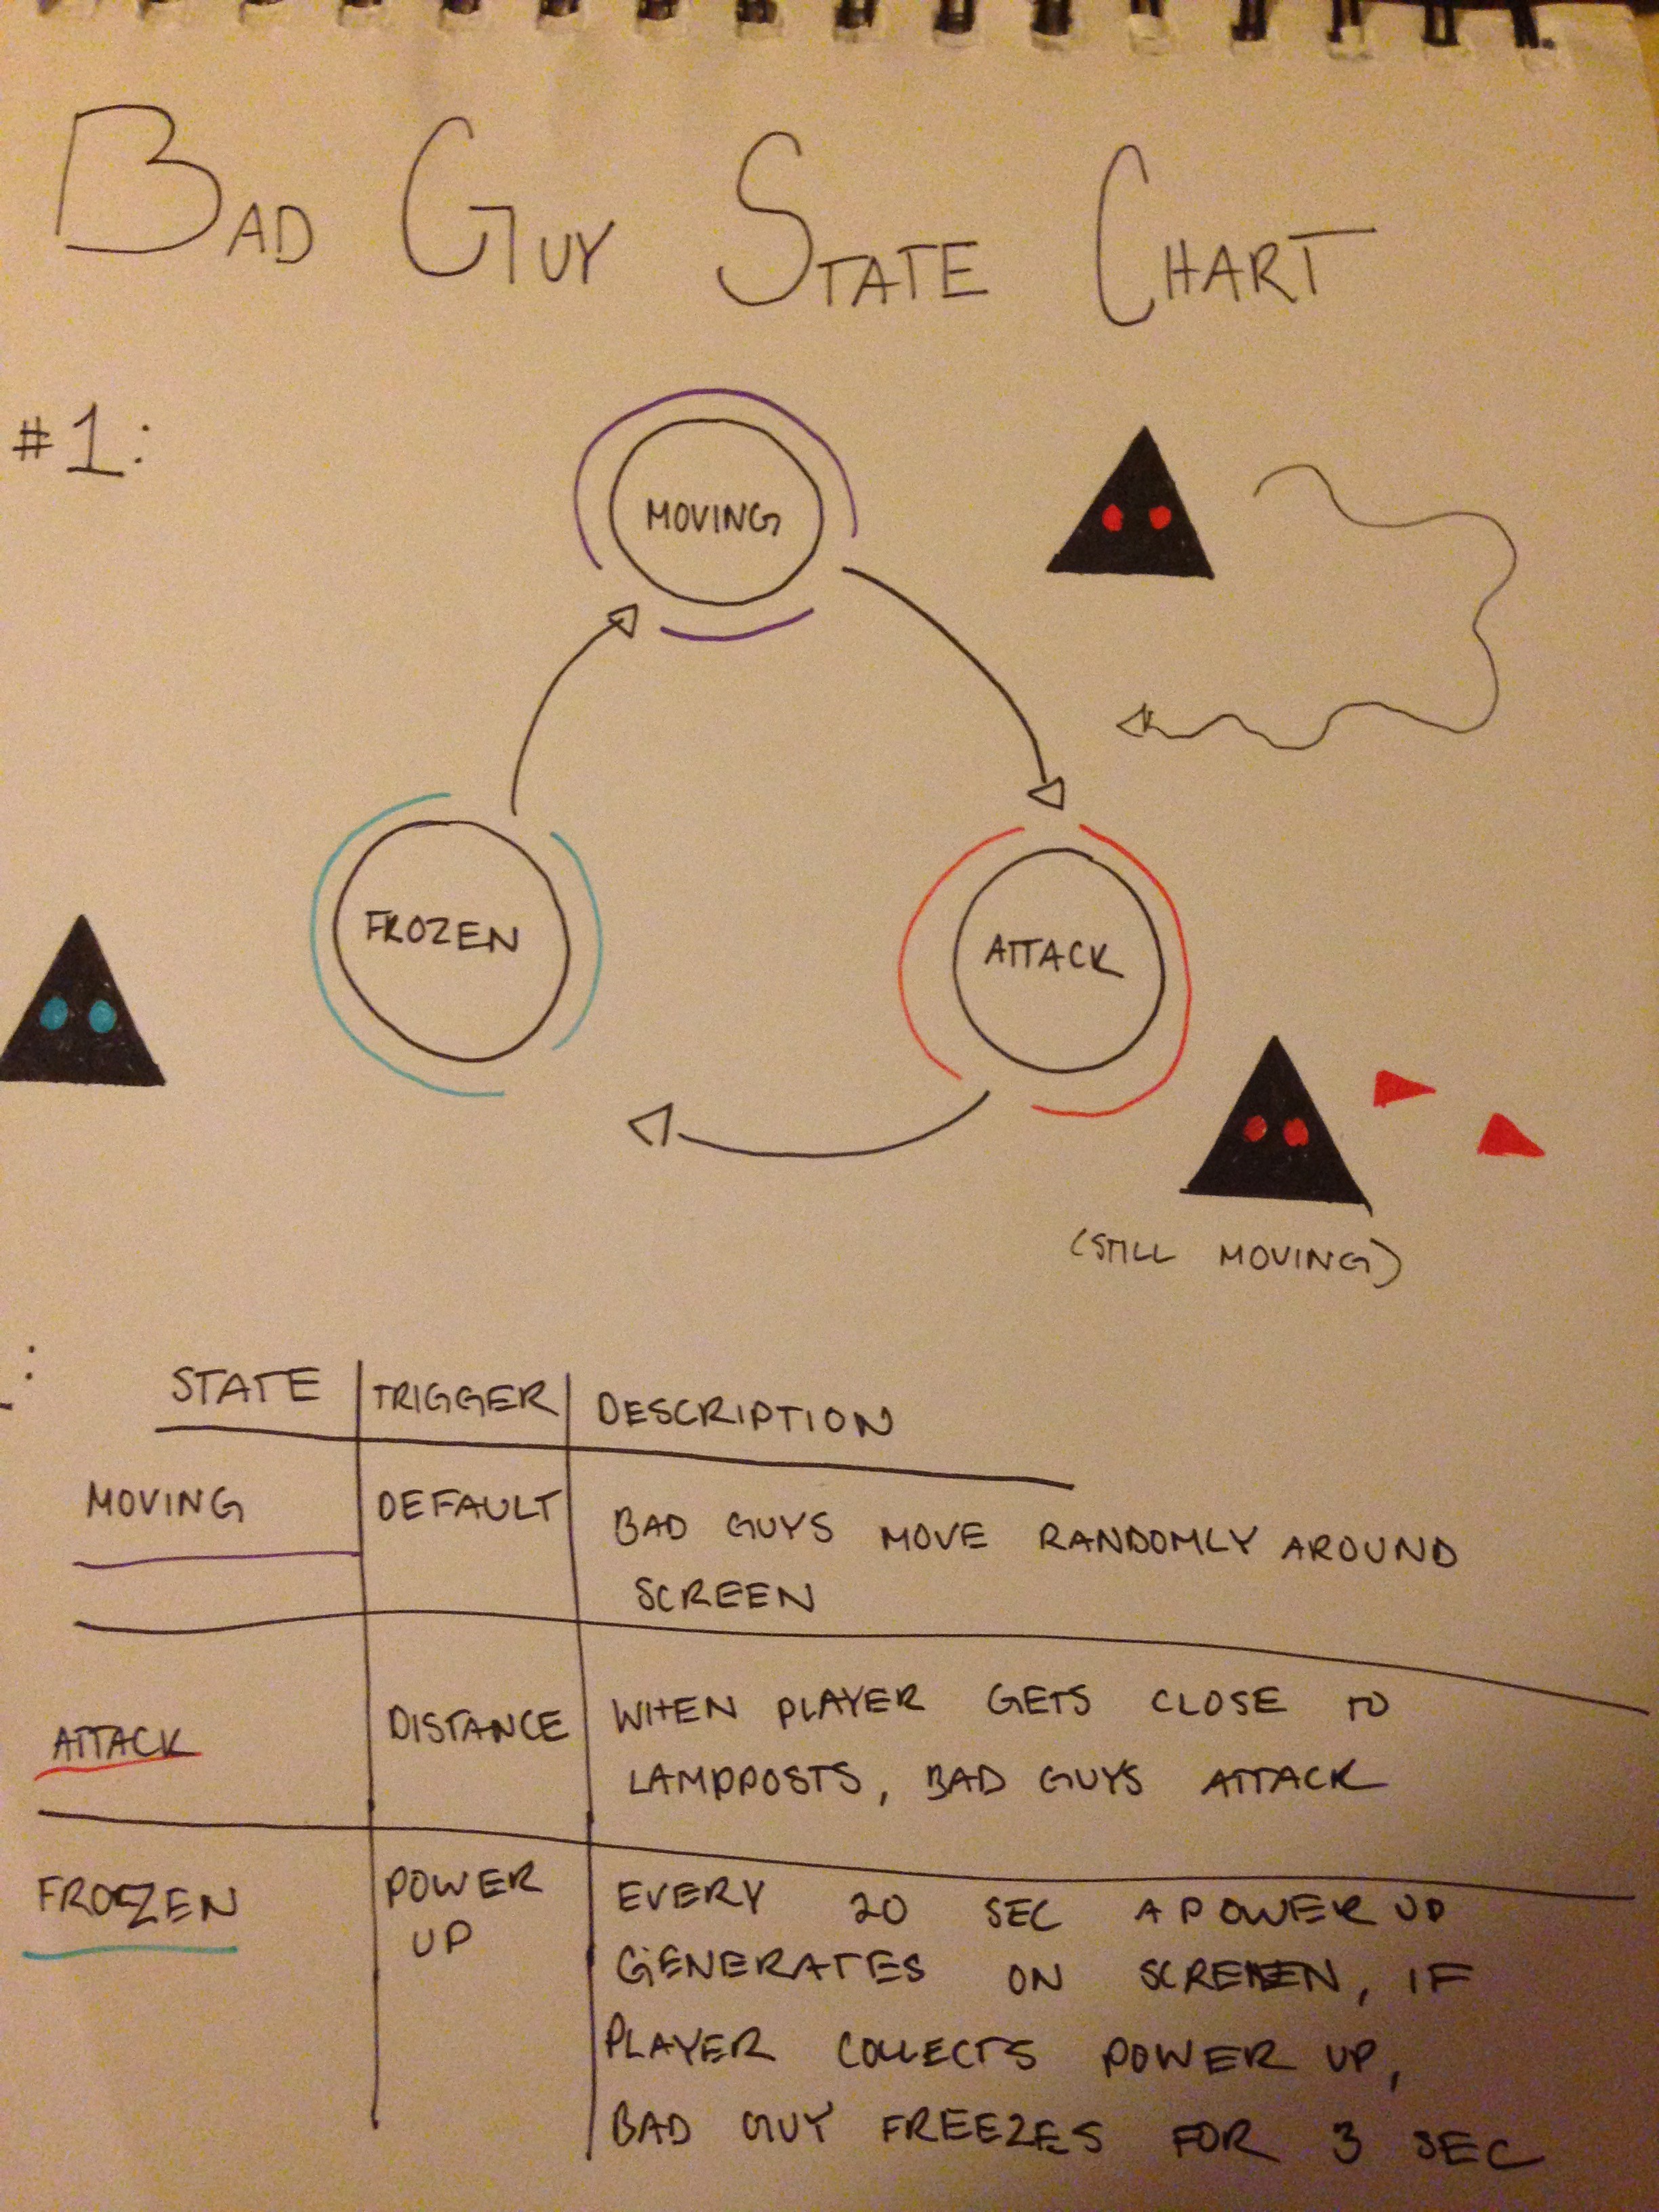 BAD GUY STATE CHART
#1:
MOVING
FROZEN
ATTACK
(STILL MOVING)
:
STATE TRIGGER DESCRIPTION
MOVING DEFAULT BAD GUYS MOVE RANDOMLY AROUND
SCREEN
ATTACK DISTANCE WHEN PLAYER GETS CLOSE TO
LAMPPOSTS, BAD GUYS ATTACK
FROZEN POWER UP EVERY 20 SEC A POWER UP
GENERATES ON SCREEN, IF
PLAYER COLLECTS POWER UP,
BAD GUY FREEZES FOR 3 SEC